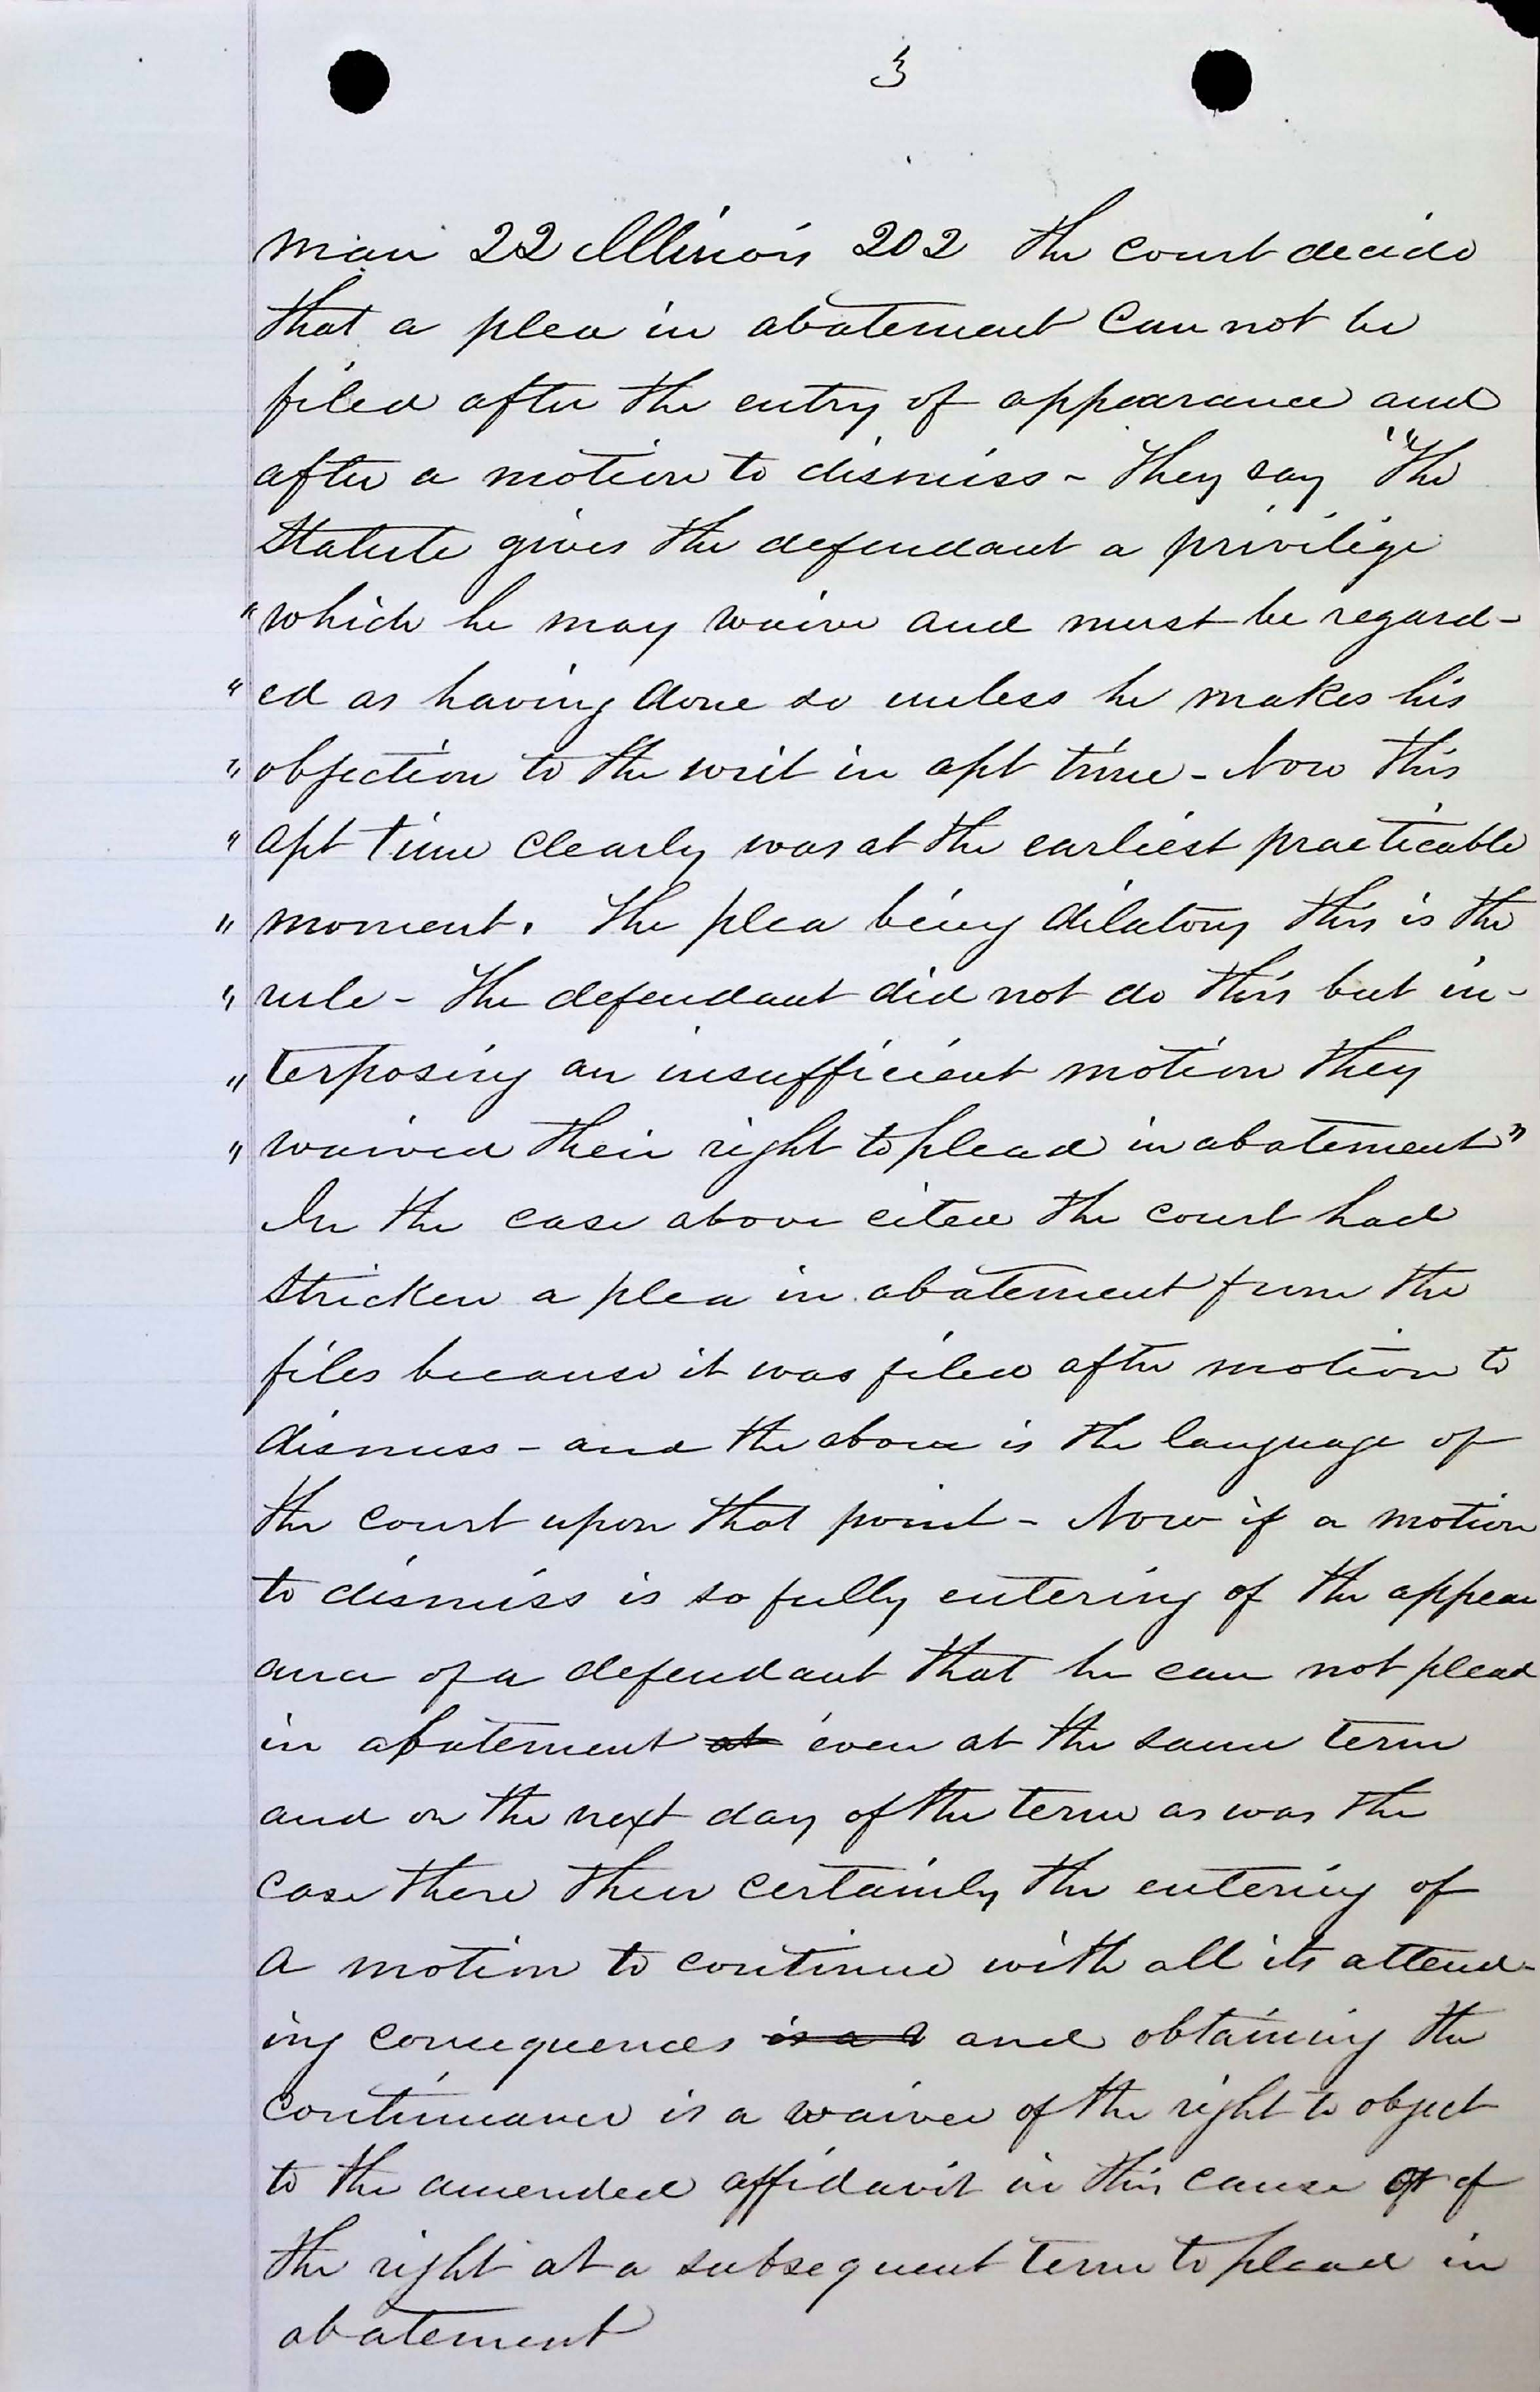 3
man 22 Illinois 202 the court decide
that a plea in abatement can not be
filed after the entry of appearance and
after a motion to dismiss - They say "The
Statute gives the defendant a privilige
"which he may waive and must be regard-
"ed as having done so unless he makes his
"objection to the writ in apt time - Now this
"apt time clearly was at the earliest practicable
"moment. The plea being dilatory this is the
"rule - The defendant did not do this but in-
"terposing an insufficient motion they
"waived their right to plead in abatement"
In the case above cited the court had
stricken a plea in abatement from the
files because it was filed after motion to
dismiss - and the above is the language of
the court upon that point - Now if a motion
to dismiss is so fully entering of the appear
ance of a defendant that he can not plead
in abatement at even at the same term
and on the next day of the term as was the
case there then certainly the entering of
a motion to continue with all its attend-
ing consequences is a and obtaining the
continuance is a waiver of the right to object
to the amended affidavit in this cause or of
the right at a subsequent term to plead in
abatement